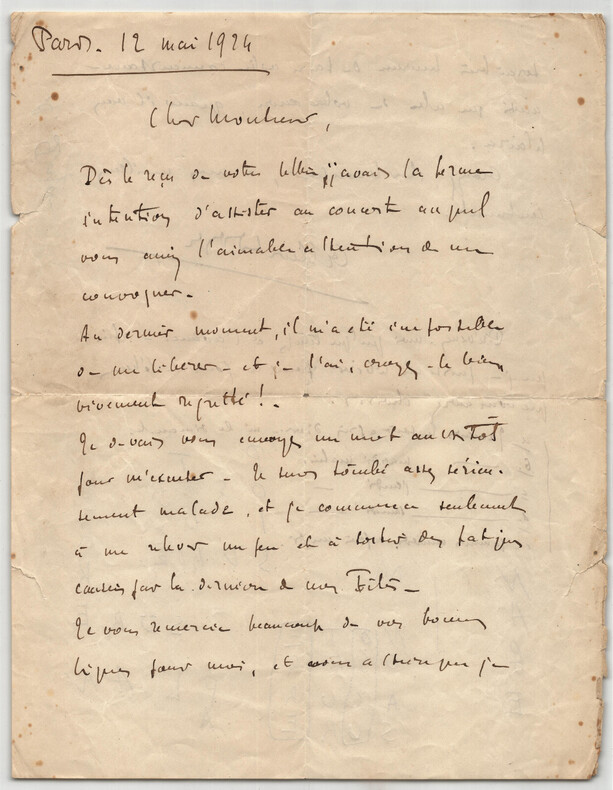 Paris. 12 mai 1924
Cher Monsieur,
Dès le reçu de votre lettre, j'avais la ferme
intention d'assister au concert auquel
vous aviez l'aimable attention de me
convoquer.
Au dernier moment, il m'a été impossible
de me libérer - et je l'ai, croyez-le bien,
vivement regretté !.
Je devais vous envoyer un mot aussitôt
pour m'excuser - Je suis tombé assez sérieu-
sement malade, et je commence seulement
à me relever un peu et à sortir des fatigues
causées par la dernière de mes Fêtes -
Je vous remercie beaucoup de vos bonnes
lignes pour moi, et je